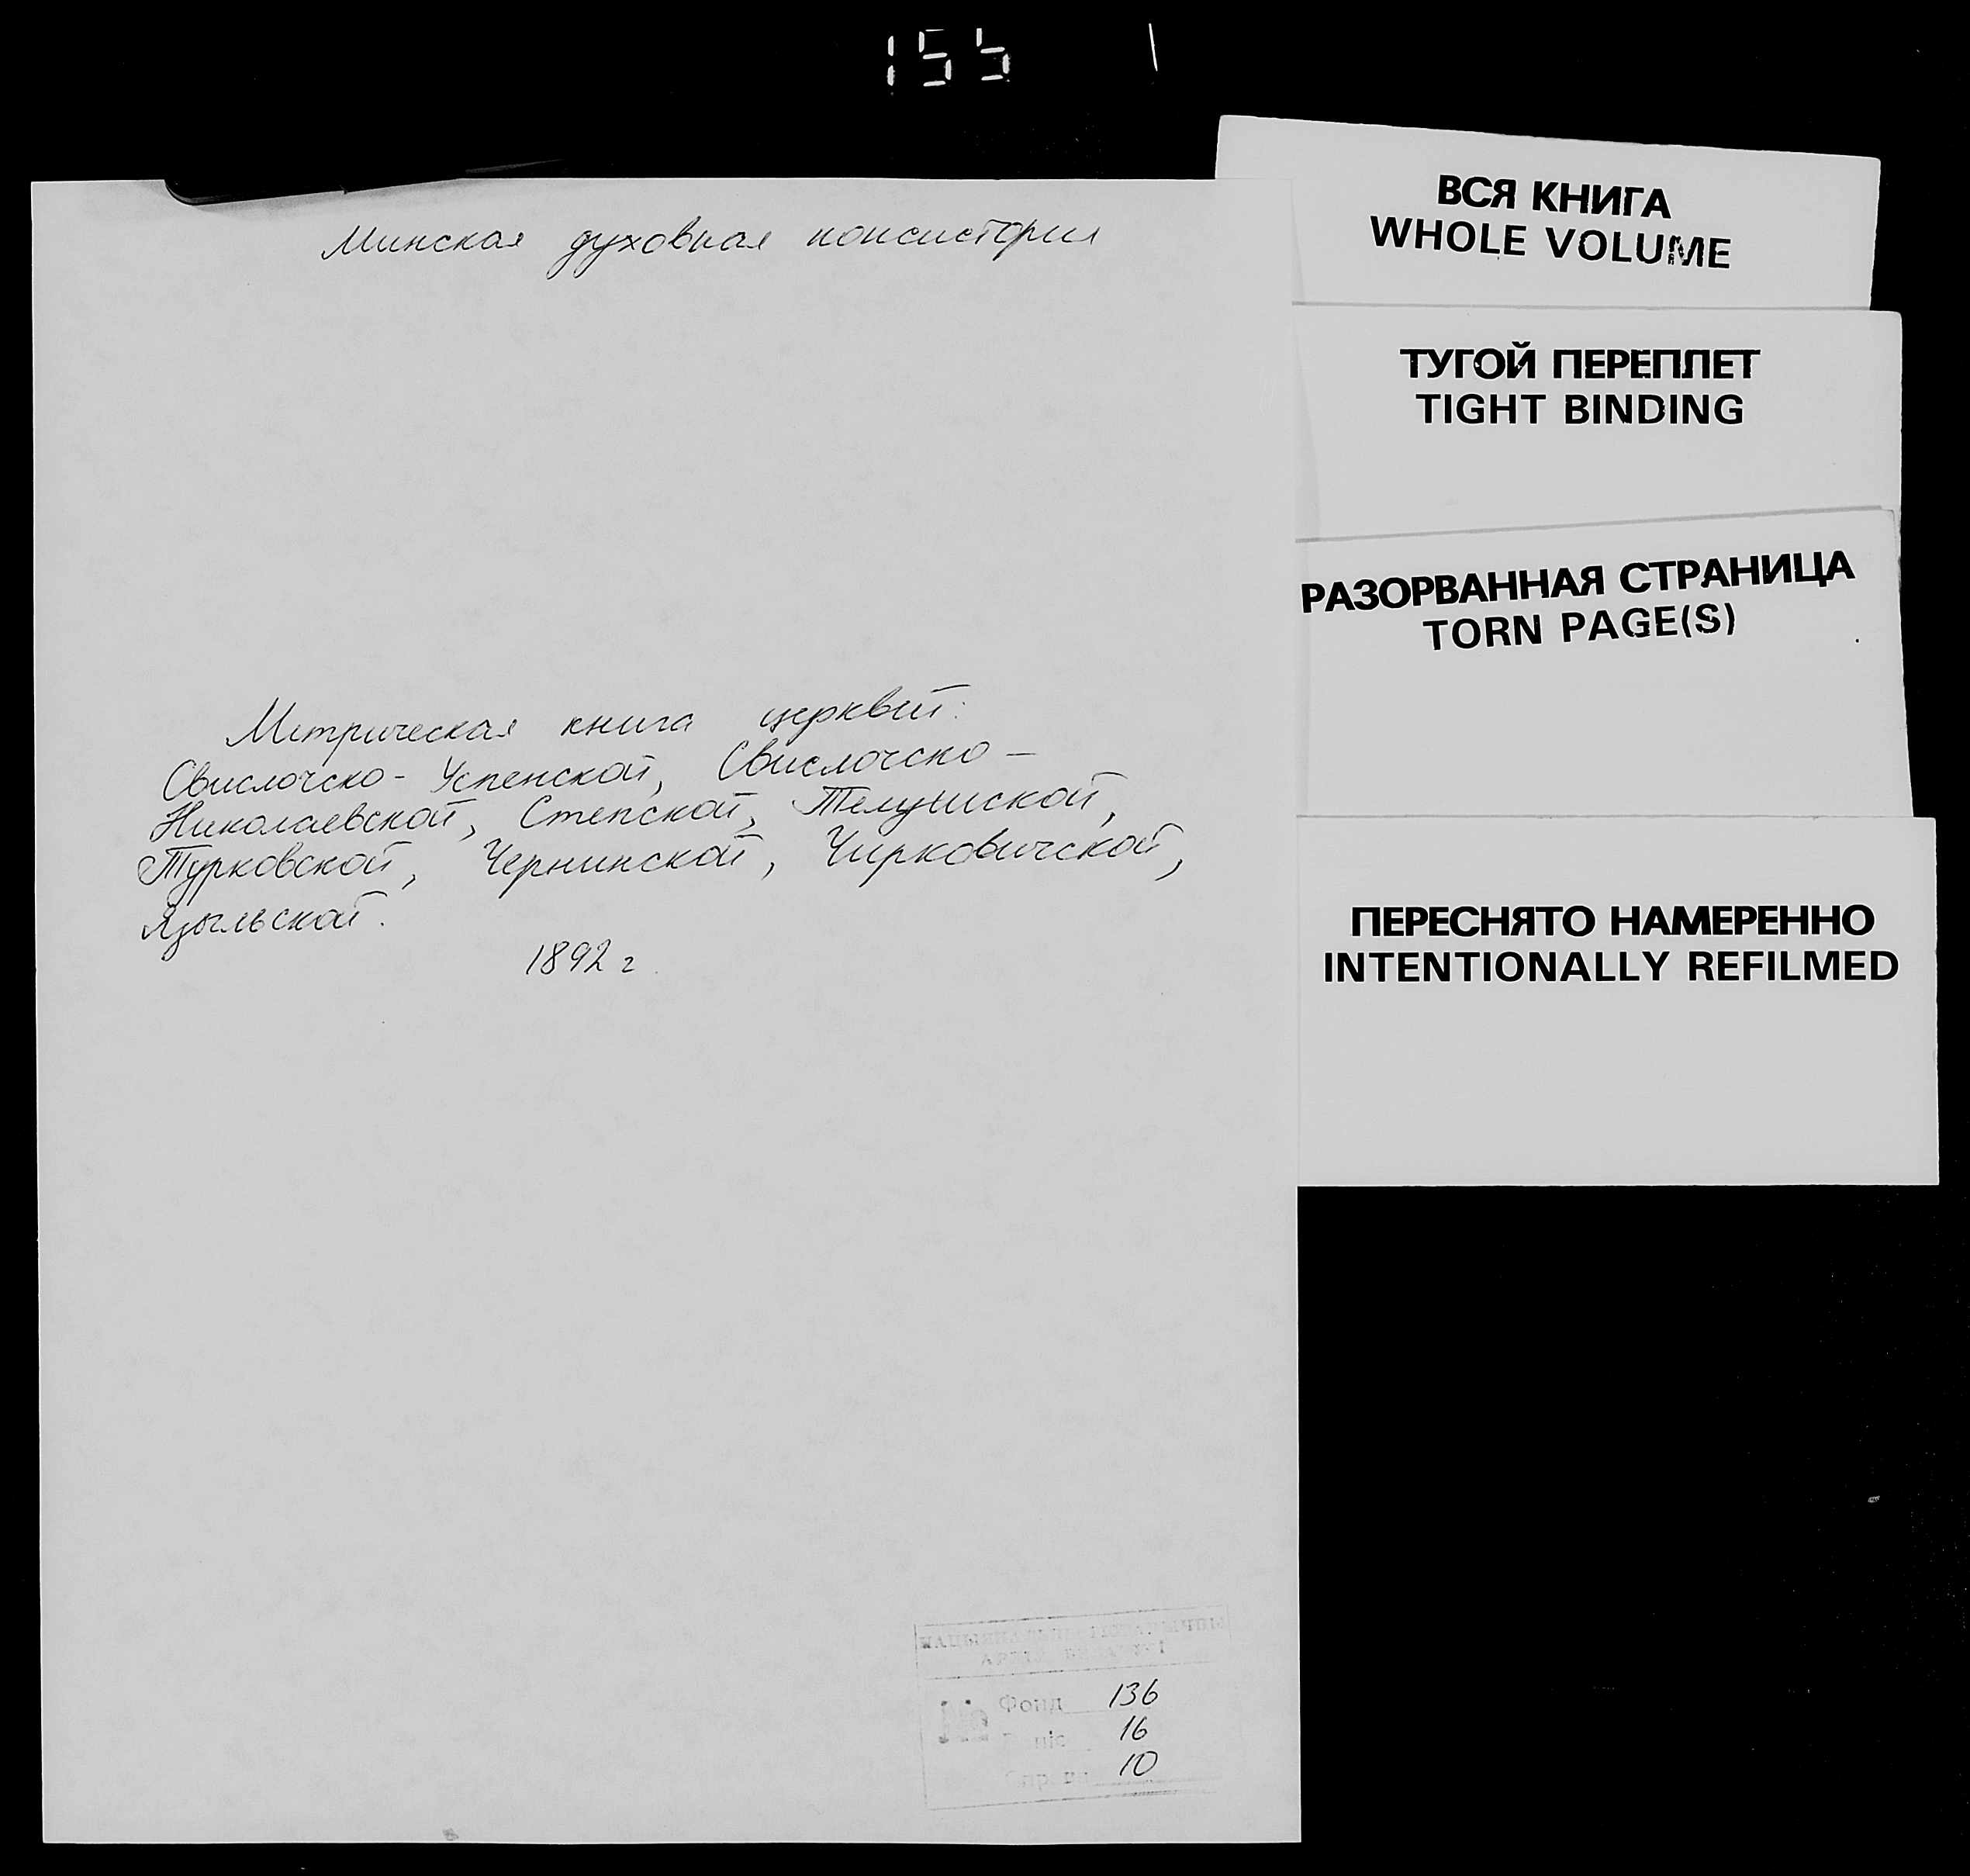 155 1
Минская духовная консистория
Метрическая книга церквей:
Свислочско- Успенской, Свислочско-
Николаевской, Степской, Телушской,
Турковской, Чернинской, Чирковичской,
Языльской.
1892 г.
НАЦЫЯНАЛЬНЫ ГІСТАРЫЧНЫ
АРХІЎ БЕЛАРУСІ
№ Фонд 136
Вопіс 16
Справа 10
ВСЯ КНИГА
WHOLE VOLUME
ТУГОЙ ПЕРЕПЛЕТ
TIGHT BINDING
РАЗОРВАННАЯ СТРАНИЦА
TORN PAGE(S)
ПЕРЕСНЯТО НАМЕРЕННО
INTENTIONALLY REFILMED